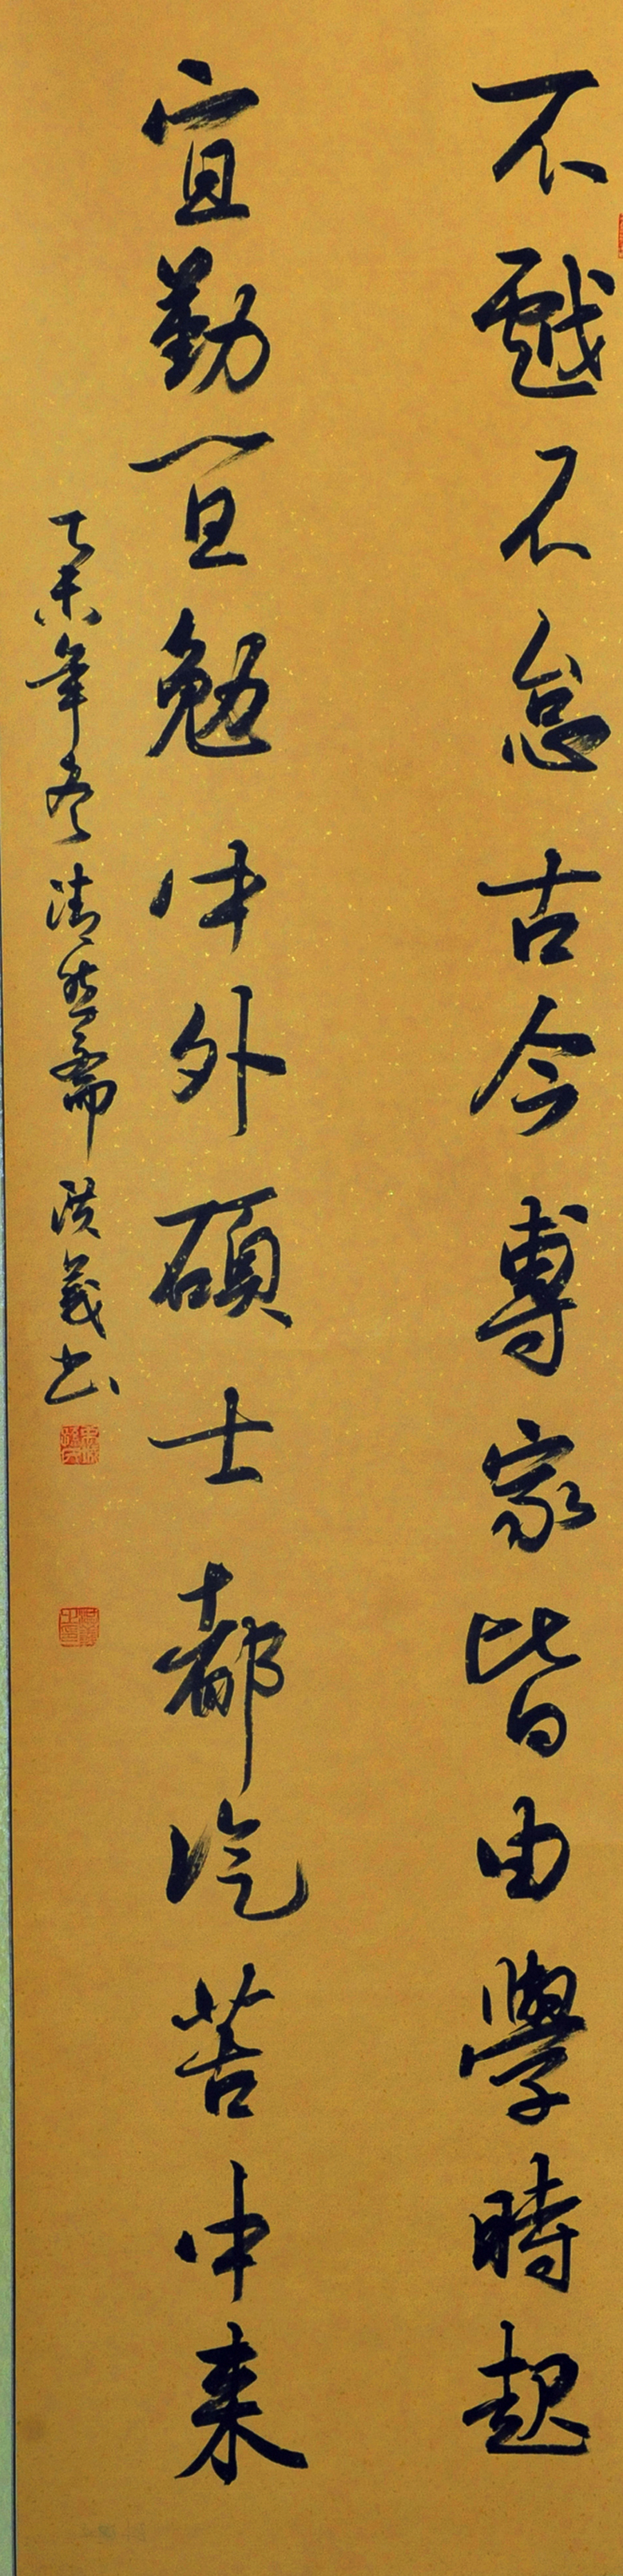 不戲不怠古今專家皆由學時起
宜勤宜勉中外碩士都從苦中来
乙未年冬清然齋洪義书